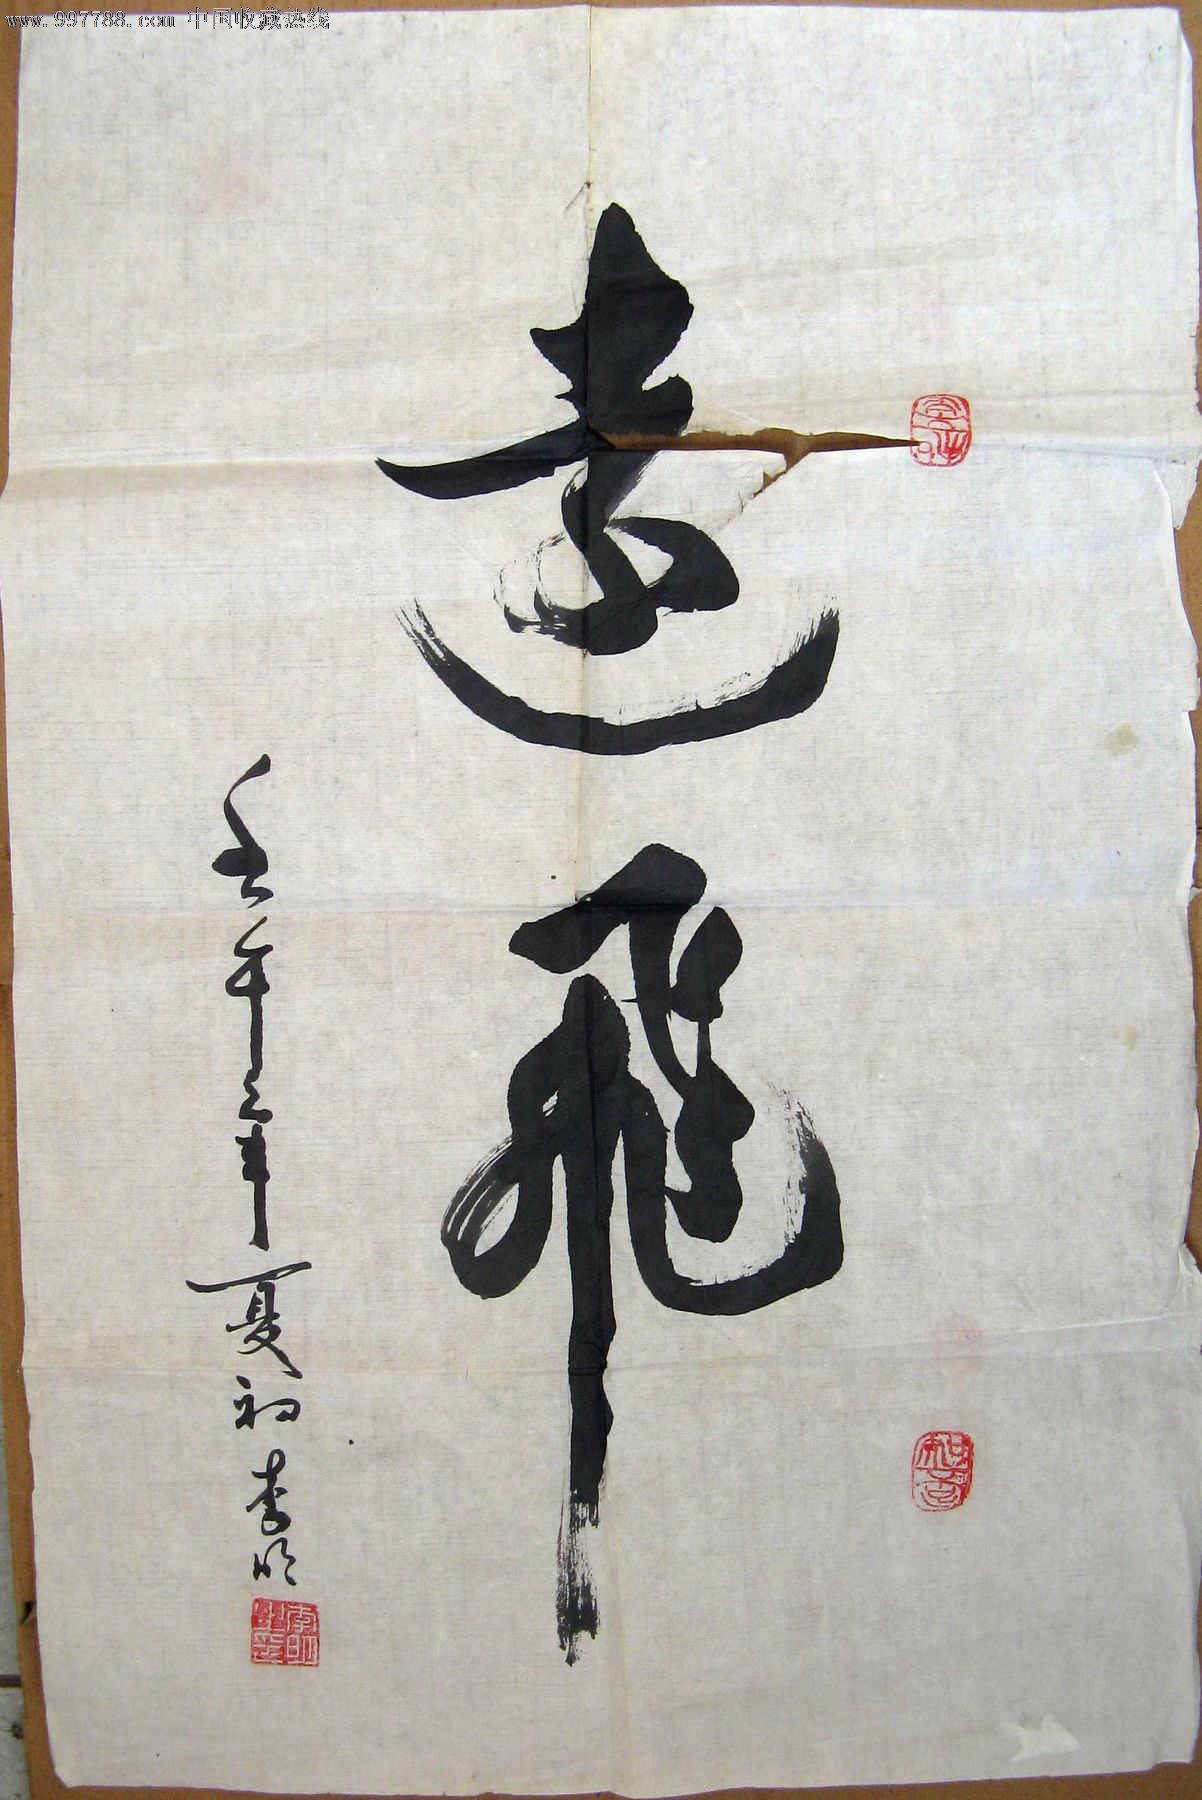 www.997788.com 中国收藏热线
远飞
壬午之年夏初李明